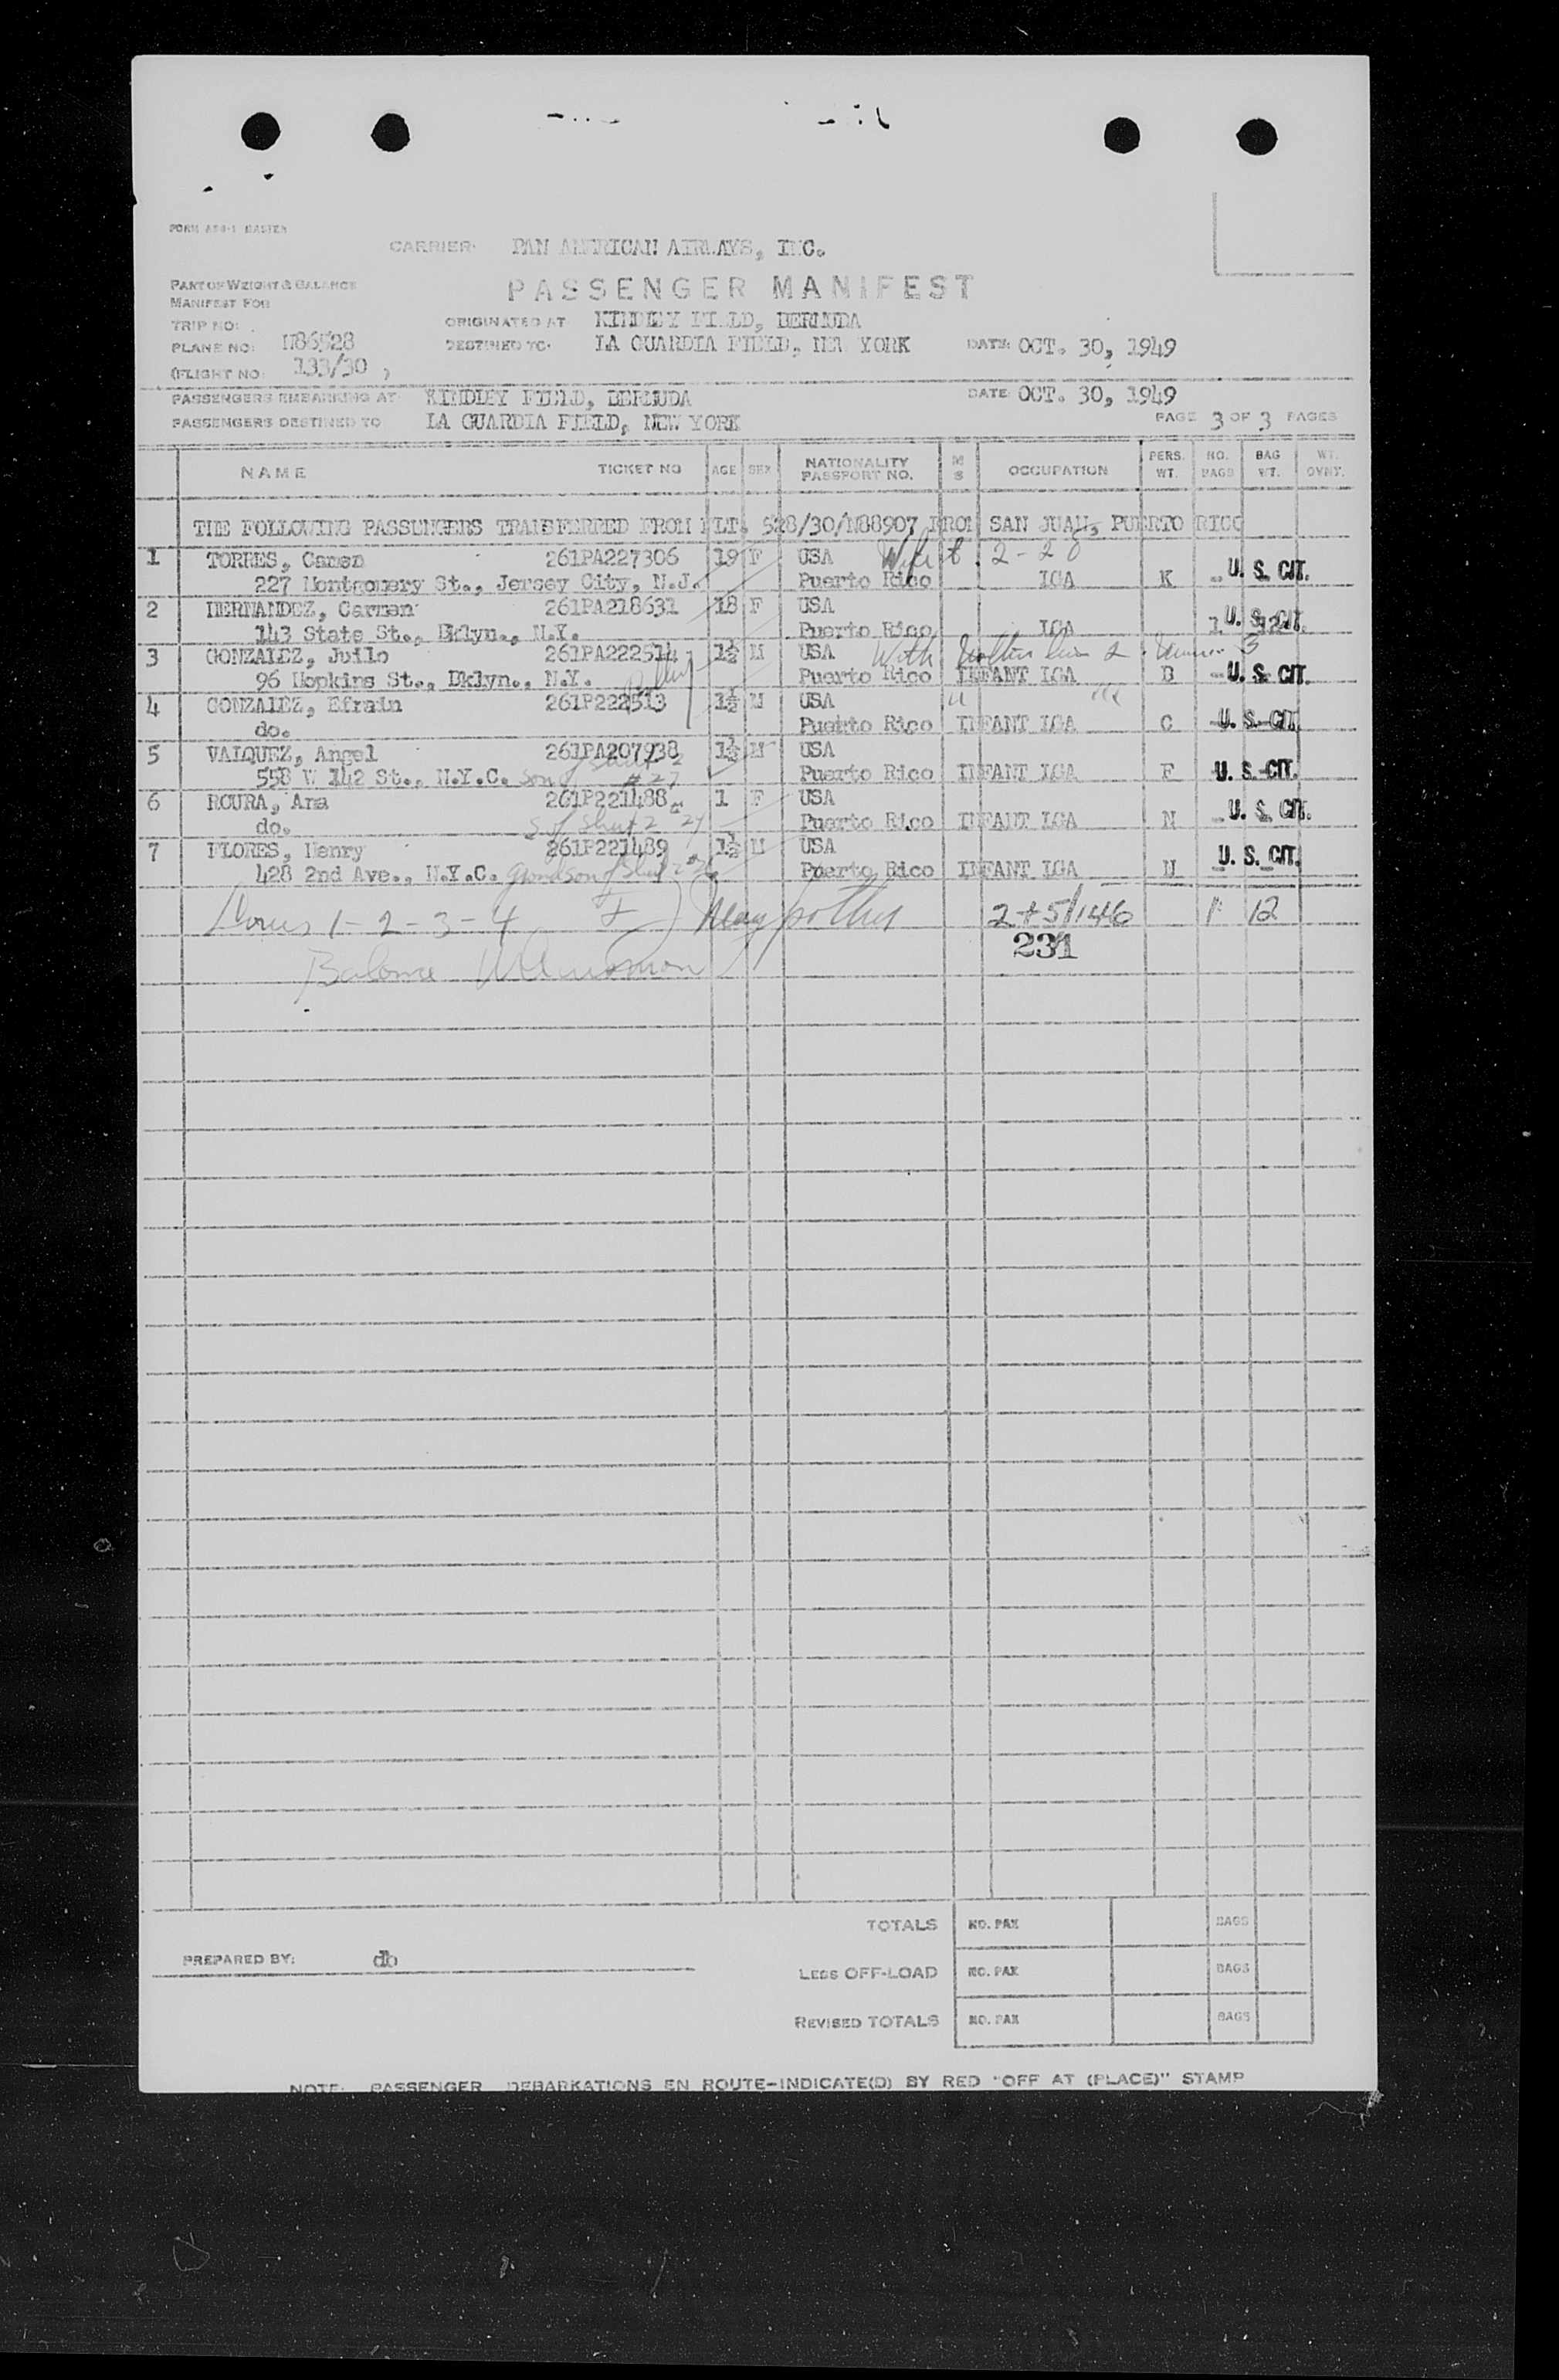 CARRIER: PAN AMERICAN AIRWAYS, INC.
PART OF WEIGHT & BALANCE
MANIFEST FOR
PASSENGER MANIFEST
TRIP NO:
ORIGINATED AT KINDLEY FIELD, BERMUDA
PLANE NO: N86528
DESTINED TO: LA GUARDIA FIELD, NEW YORK DATE: OCT. 30, 1949
(FLIGHT NO: 133/30 )
PASSENGERS EMBARKING AT KINDLEY FIELD, BERMUDA DATE OCT. 30, 1949
PASSENGERS DESTINED TO LA GUARDIA FIELD, NEW YORK PAGE 3 OF 3 PAGES
NAME TICKET NO AGE SEX NATIONALITY PASSPORT NO. M S OCCUPATION PERS. WT. NO. BAGS BAG WT. WT. OVNT.
THE FOLLOWING PASSENGERS TRANSFERRED FROM FLT. 528/30/N88907 FROM SAN JUAN, PUERTO RICO
1 TORRES, Camen 261PA227306 19 F USA Wife of 2-20
227 Montgomery St., Jersey City, N.J. Puerto Rico LGA K - U. S. CIT.
2 HERNANDEZ, Carmen 261PA218631 18 F USA
143 State St., Bklyn., N.Y. Puerto Rico LGA 1 12 U. S. CIT.
3 GONZALEZ, Juilo 261PA222514 1½ M USA With
96 Hopkins St., Bklyn., N.Y. Puerto Rico INFANT LGA B - U. S. CIT.
4 GONZALEZ, Efrain 261P222513 1½ M USA
do. Puerto Rico INFANT LGA C U. S. CIT.
5 VALQUEZ, Angel 261PA207938 1½ M USA
558 W 142 St., N.Y.C. son of Sheet 2 #27 Puerto Rico INFANT LGA F U. S. CIT.
6 ROURA, Ana 261P221488 1 F USA
do. Sheet 2 Puerto Rico INFANT LGA N - U. S. CIT.
7 FLORES, Henry 261P221489 1½ M USA
428 2nd Ave., N.Y.C. Grandson of Sheet Puerto Rico INFANT LGA N - U. S. CIT.
1-2-3-4 2+5/146 1 12
231
TOTALS NO. PAX BAGS
PREPARED BY: db
LESS OFF-LOAD NO. PAX BAGS
REVISED TOTALS NO. PAX BAGS
NOTE: PASSENGER DEBARKATIONS EN ROUTE-INDICATE(D) BY RED "OFF AT (PLACE)" STAMP